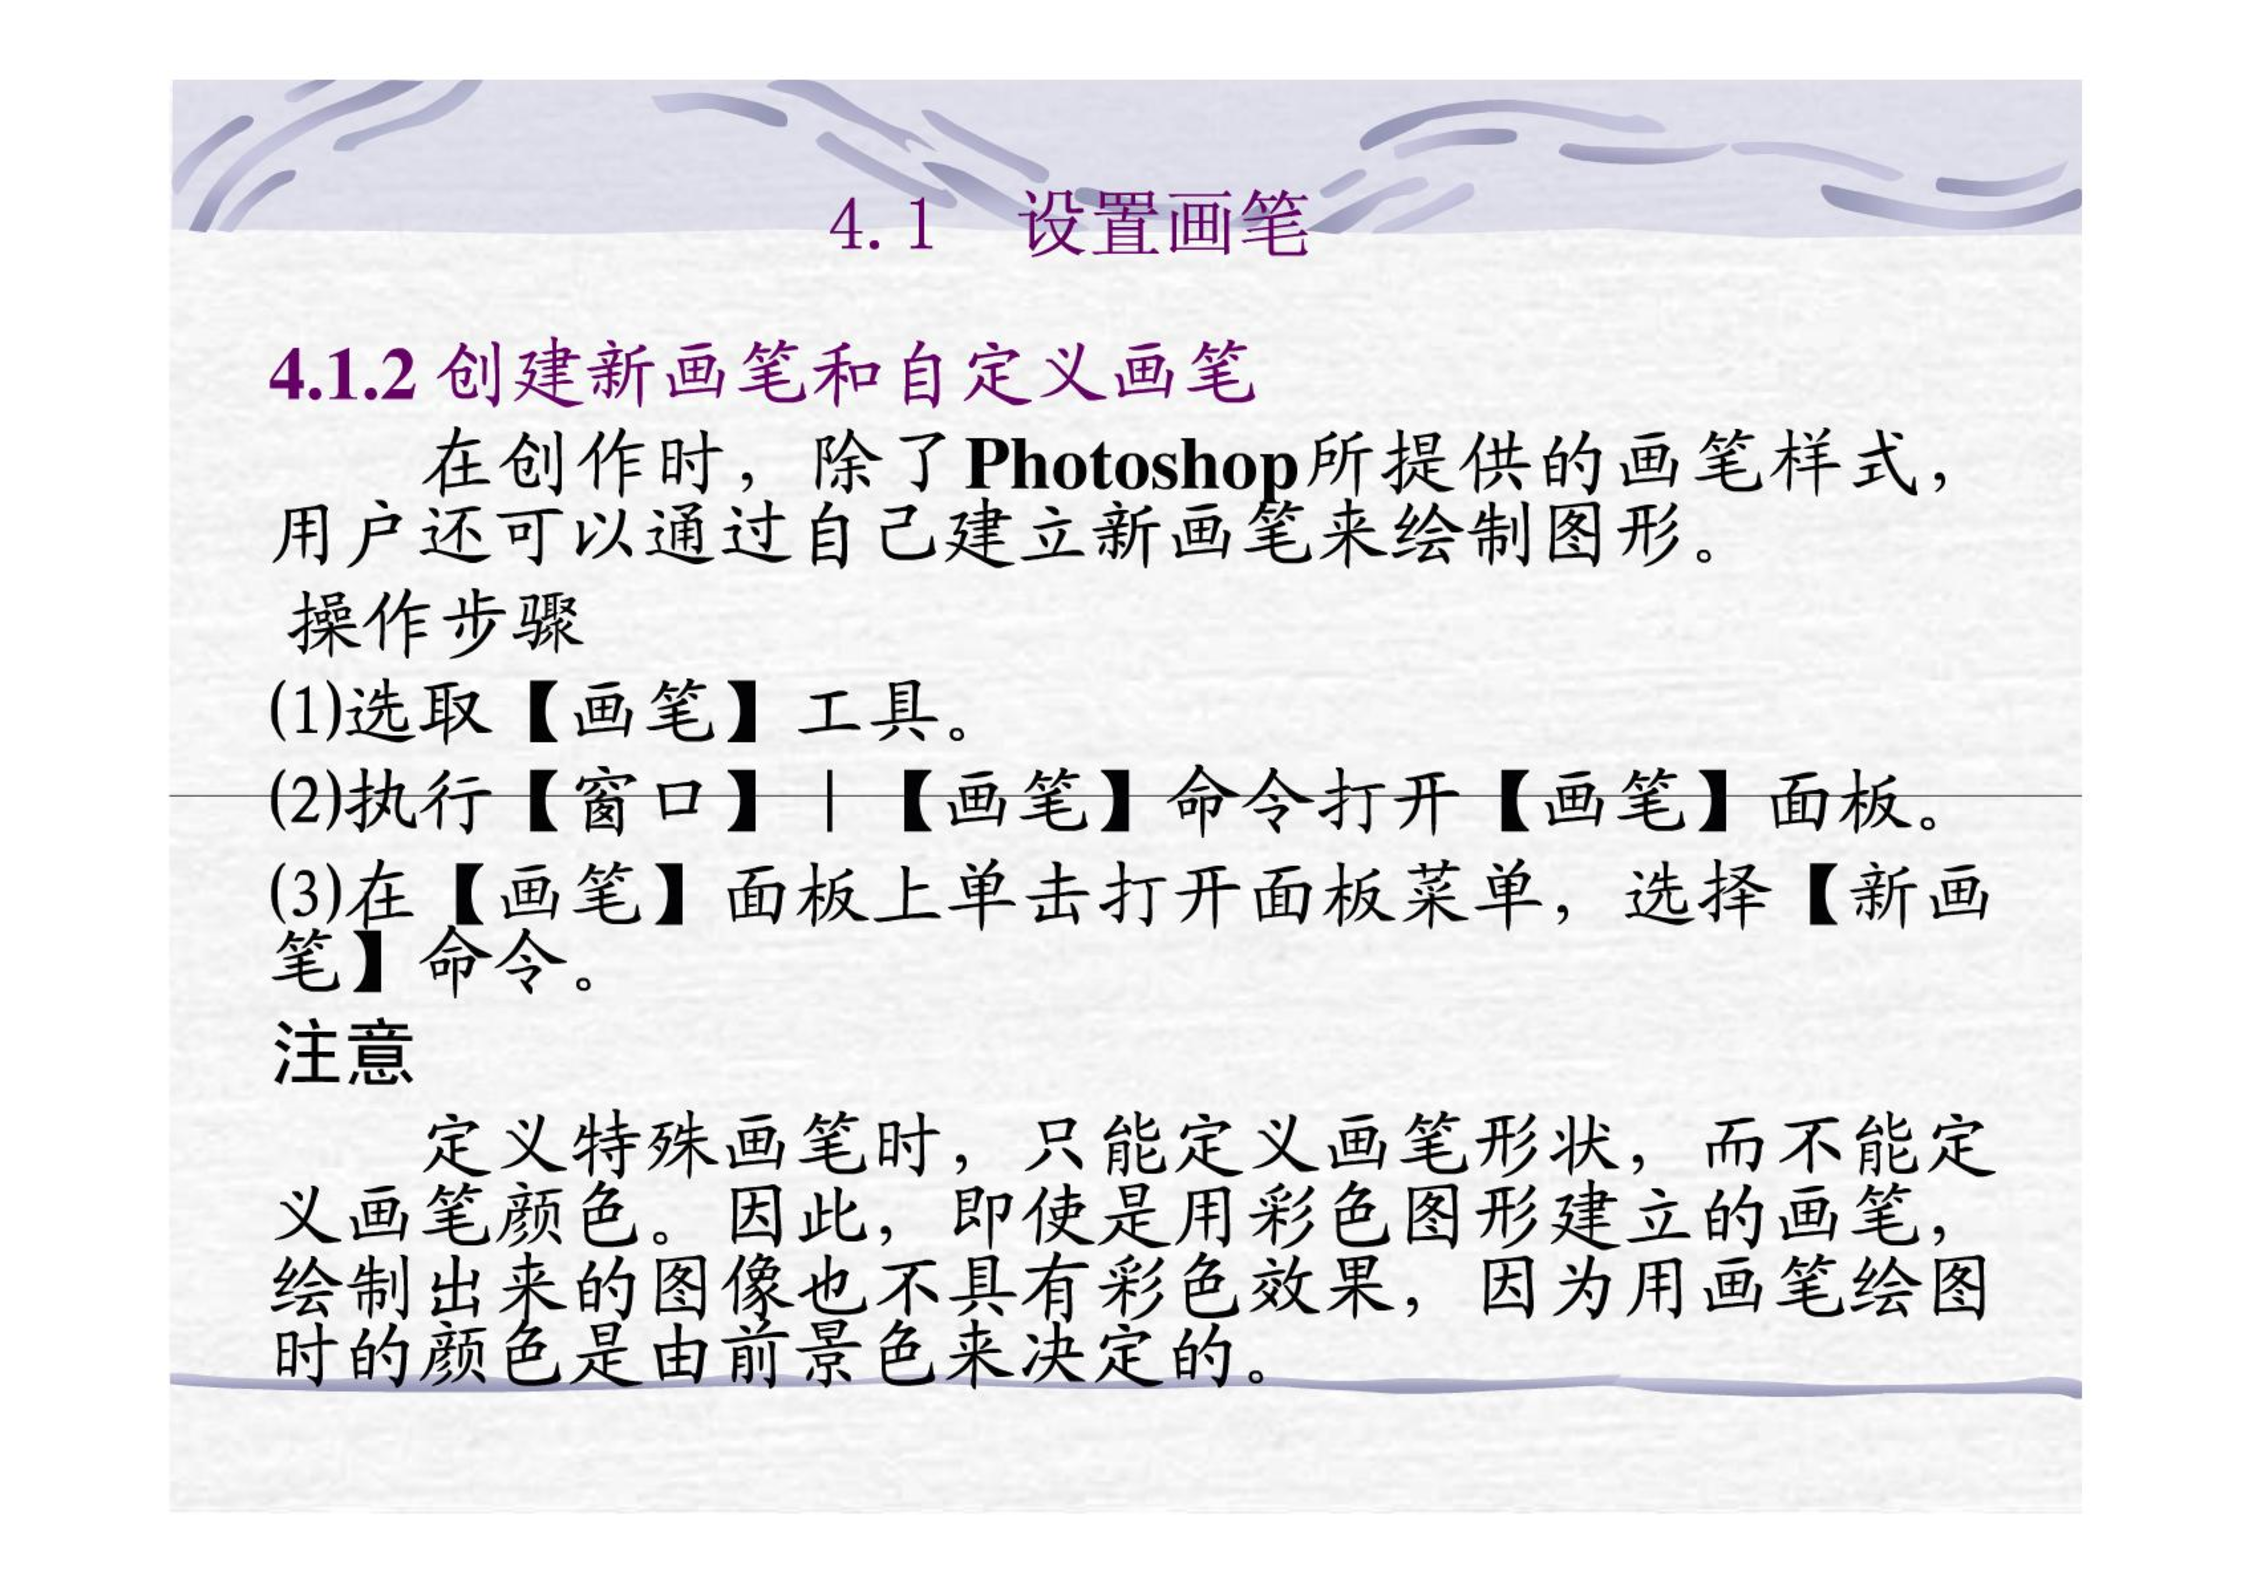 4.1　设置画笔
4.1.2 创建新画笔和自定义画笔
在创作时，除了Photoshop所提供的画笔样式，
用户还可以通过自己建立新画笔来绘制图形。
操作步骤
(1)选取【画笔】工具。
(2)执行【窗口】｜【画笔】命令打开【画笔】面板。
(3)在【画笔】面板上单击打开面板菜单，选择【新画
笔】命令。
注意
定义特殊画笔时，只能定义画笔形状，而不能定
义画笔颜色。因此，即使是用彩色图形建立的画笔，
绘制出来的图像也不具有彩色效果，因为用画笔绘图
时的颜色是由前景色来决定的。